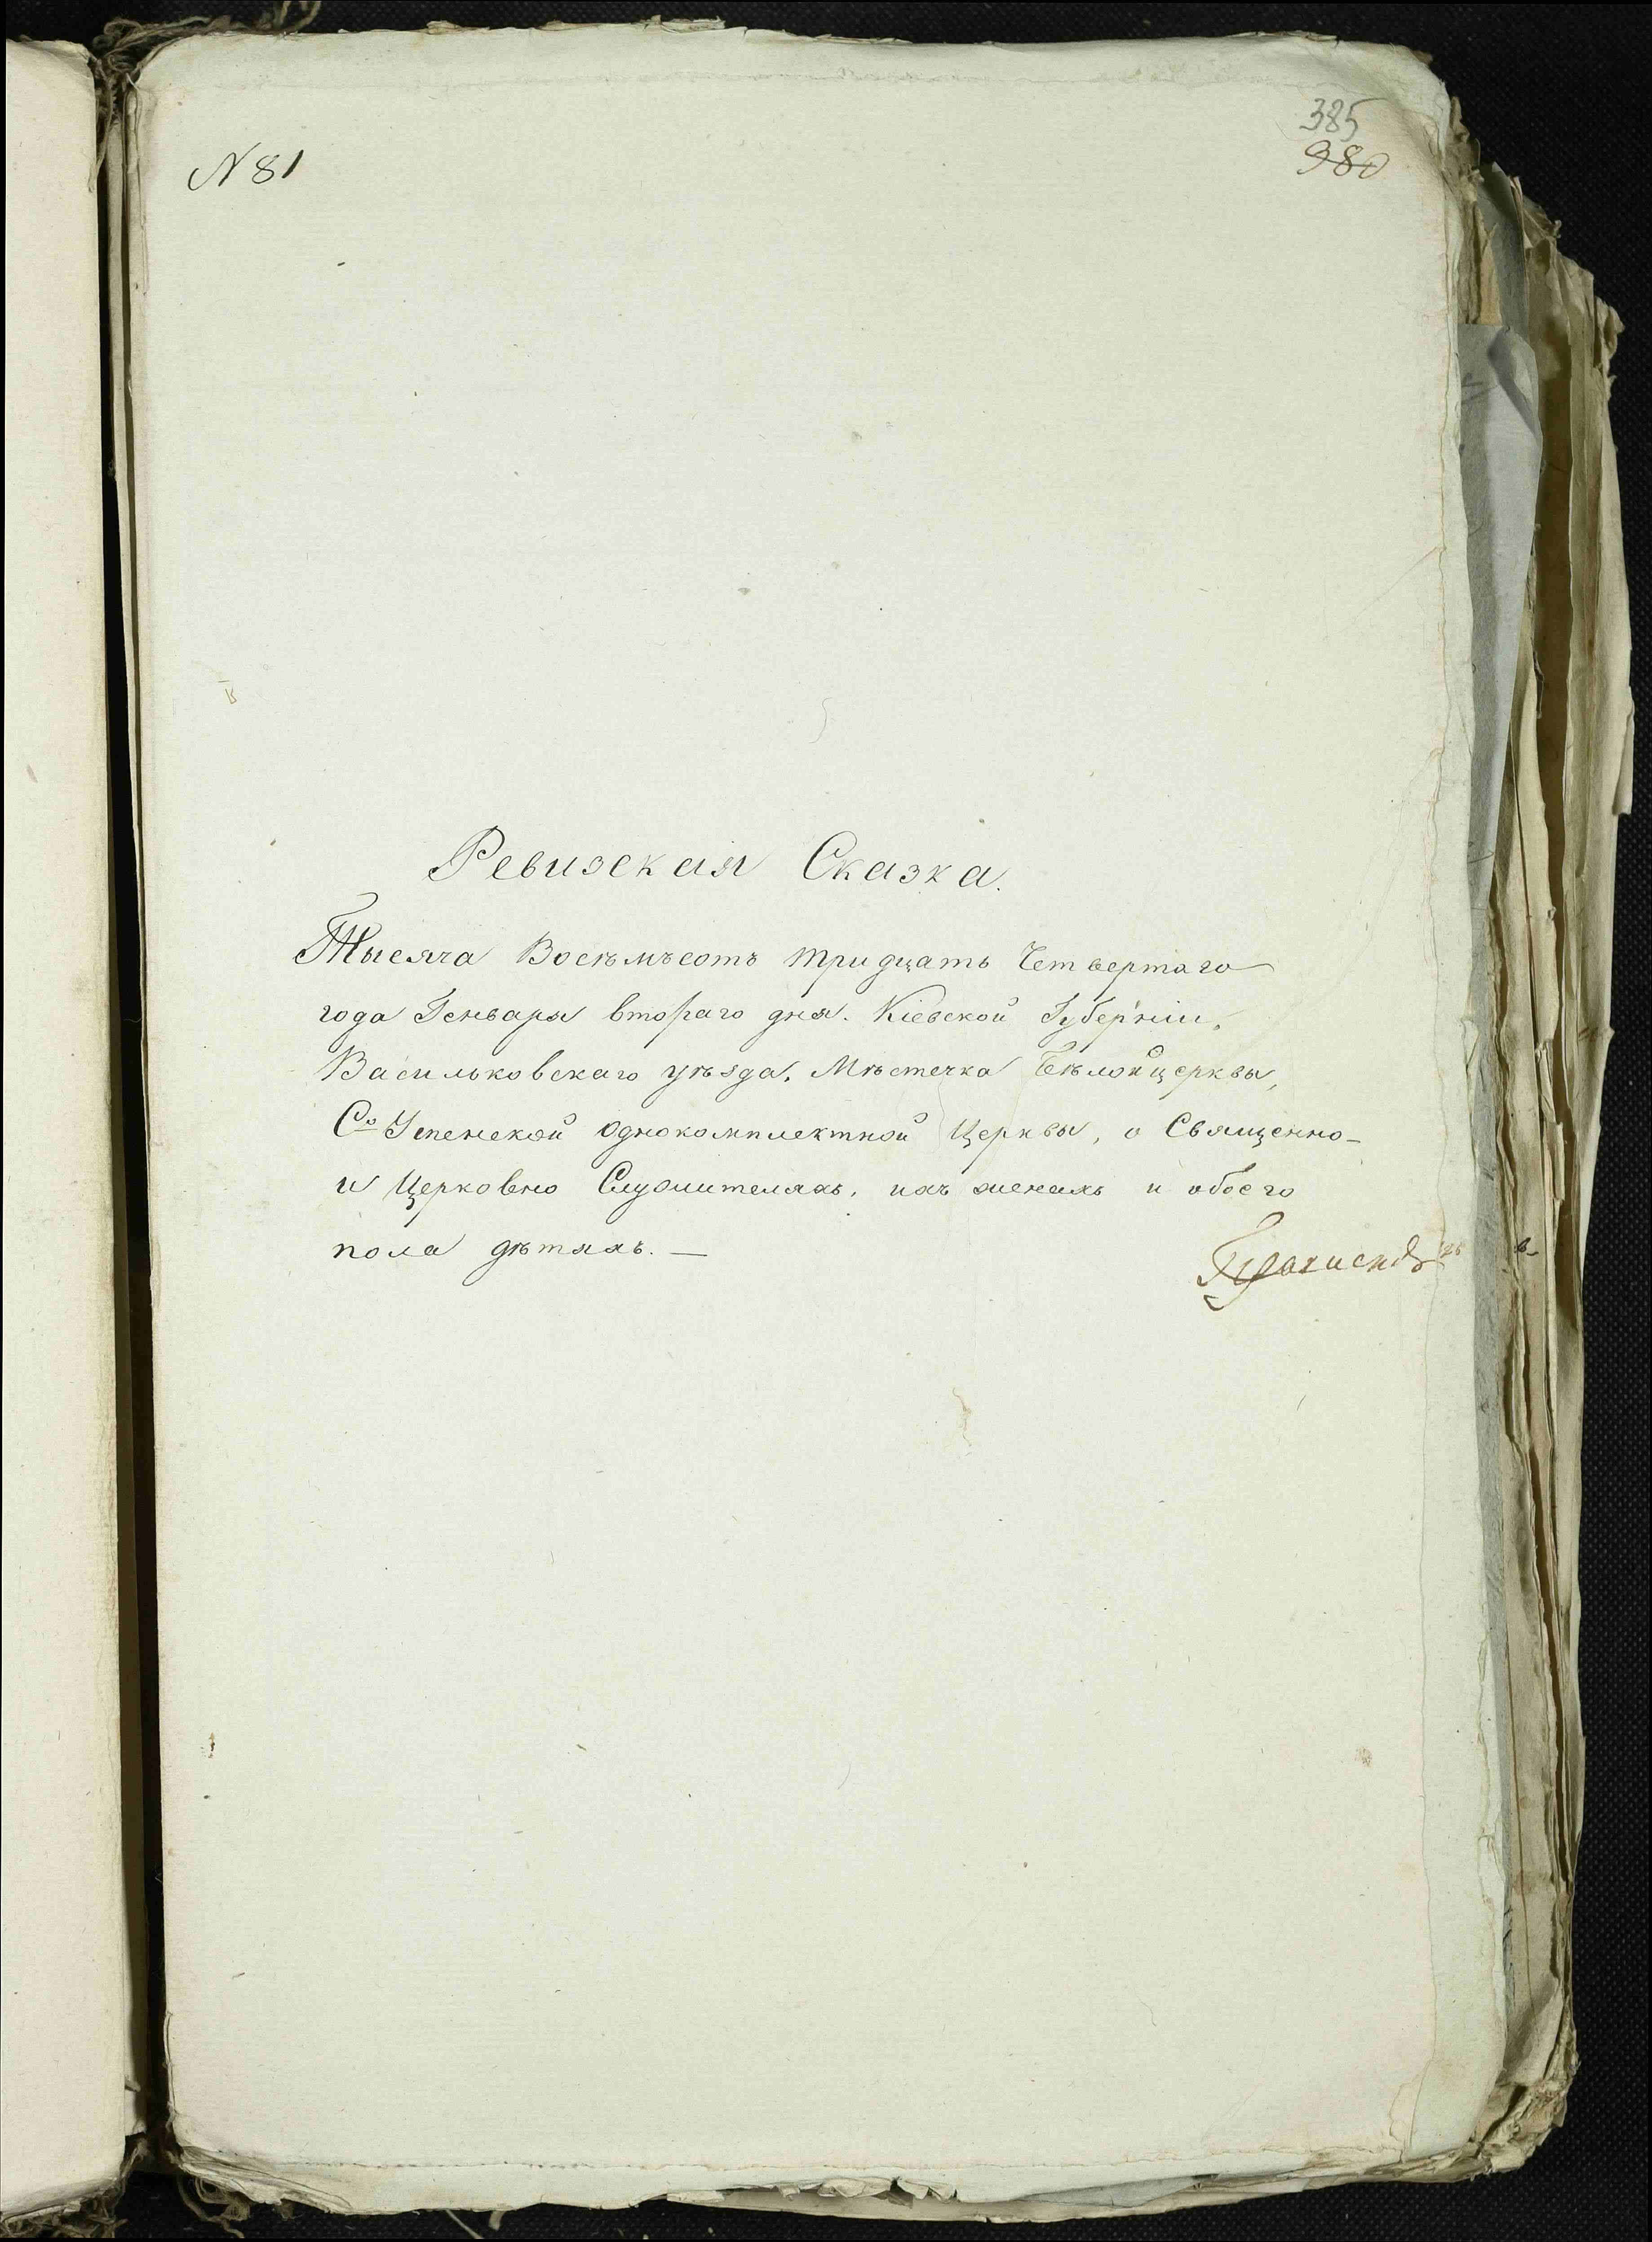 385
980
N 81
Ревизская Сказка.
Тысяча Восѣмьсотъ тридцать Четвертаго
года Генваря втораго дня. Кіевской Губерніи,
Васильковскаго уѣзда, Мѣстечка Бѣлойцерквы,
Св Успенской однокомплектной Церквы, о Священно-
и Церковно Служителяхъ, ихъ женахъ и обоего
пола дѣтяхъ. —